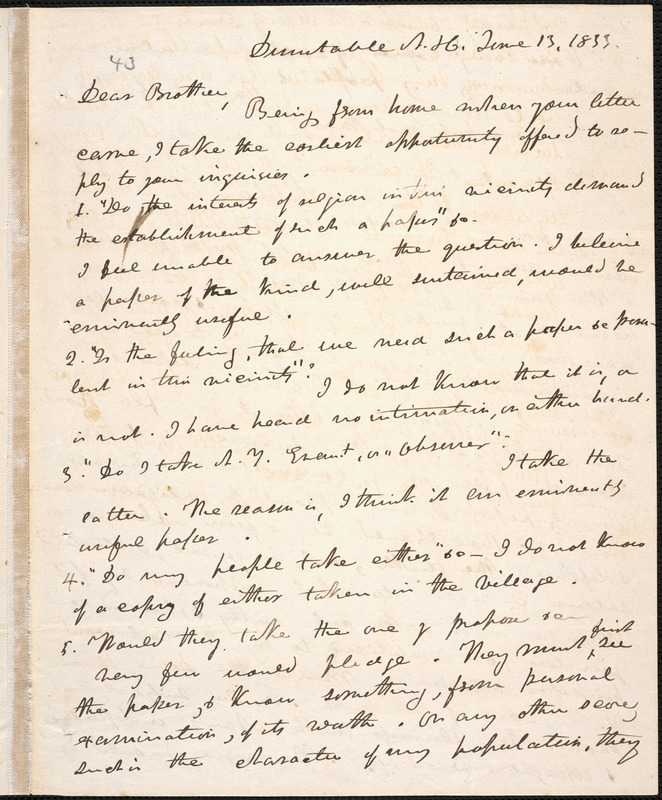 43
Dunstable N.H. June 13, 1833.
Dear Brother,
Being from home when your letter
came, I take the earliest opportunity offered to re-
ply to your inquiries.
1. "Do the interests of religion in this vicinity demand
the establishment of such a paper" &c.
I feel unable to answer the question. I believe
a paper of the kind, well sustained, would be
eminently useful.
2. "Is the feeling, that we need such a paper &c preva-
lent in this vicinity"?
I do not know that it is, or
is not. I have heard no intimation, on either hand.
3. "Do I take N. Y. Evant, or "Observer":
I take the
latter. The reason is, I think it an eminently
useful paper.
4. "Do my people take either" &c - I do not know
of a copy of either taken in the village.
5. "Would they take the one I propose
very few would pledge. They must first see
the paper, & know something, from personal
examination, of its worth. On any other score,
such is the character of my population, they